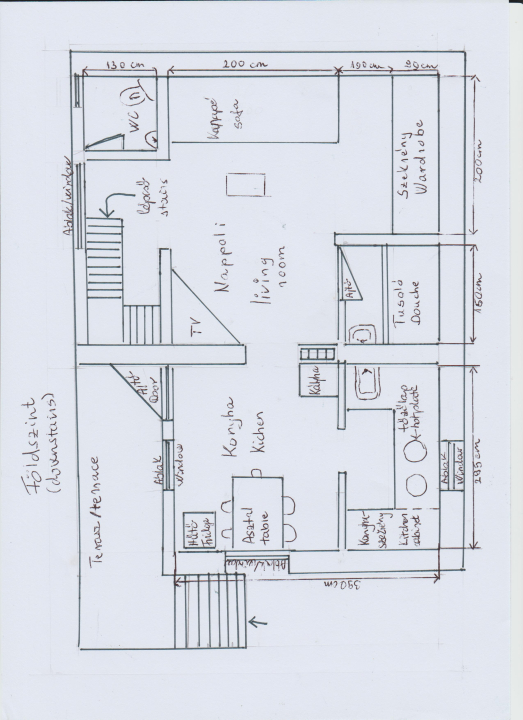 Földszint
(downstairs)
130 cm
200 cm
190 cm
90 cm
WC
Kanapé
sofa
Szekrény
Wardrobe
200 cm
Ablak/window
lépcső
stairs
Nappali
living
room
TV
Ajtó
Tusoló
Douche
150 cm
Ajtó
Door
Terasz/terrace
Ablak
window
Konyha
Kichen
Kályha
főzőlap
hotplate
Ablak
Window
295 cm
Hűtő
Fridge
Asztal
table
Konyha
szekrény
kitchen
Ablak/window
390 cm